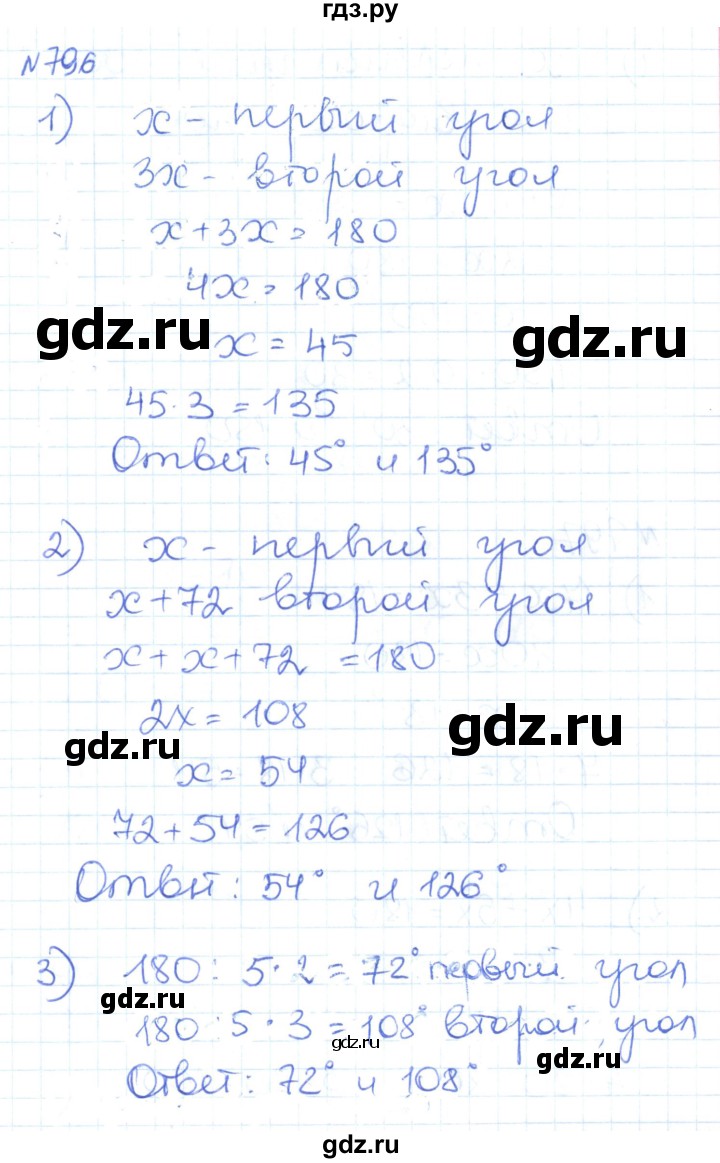 гдз.ру
N796
1) x - первый угол
3x - второй угол
x + 3x = 180
4x = 180
gdz.ru x = 45 gdz.ru
45·3 = 135
Ответ: 45° и 135°
2) x - первый угол
x + 72 второй угол
x + x + 72 = 180
2x = 108
gdz.ru
gdz.ru
x = 54
72 + 54 = 126
Ответ: 54° и 126°
3) 180 : 5·2 = 72° первый угол
gdz.ru
180 : 5 · 3 = 108° второй угол
gdz.ru
gdz.ru
Ответ: 72° и 108°
gdz.ru